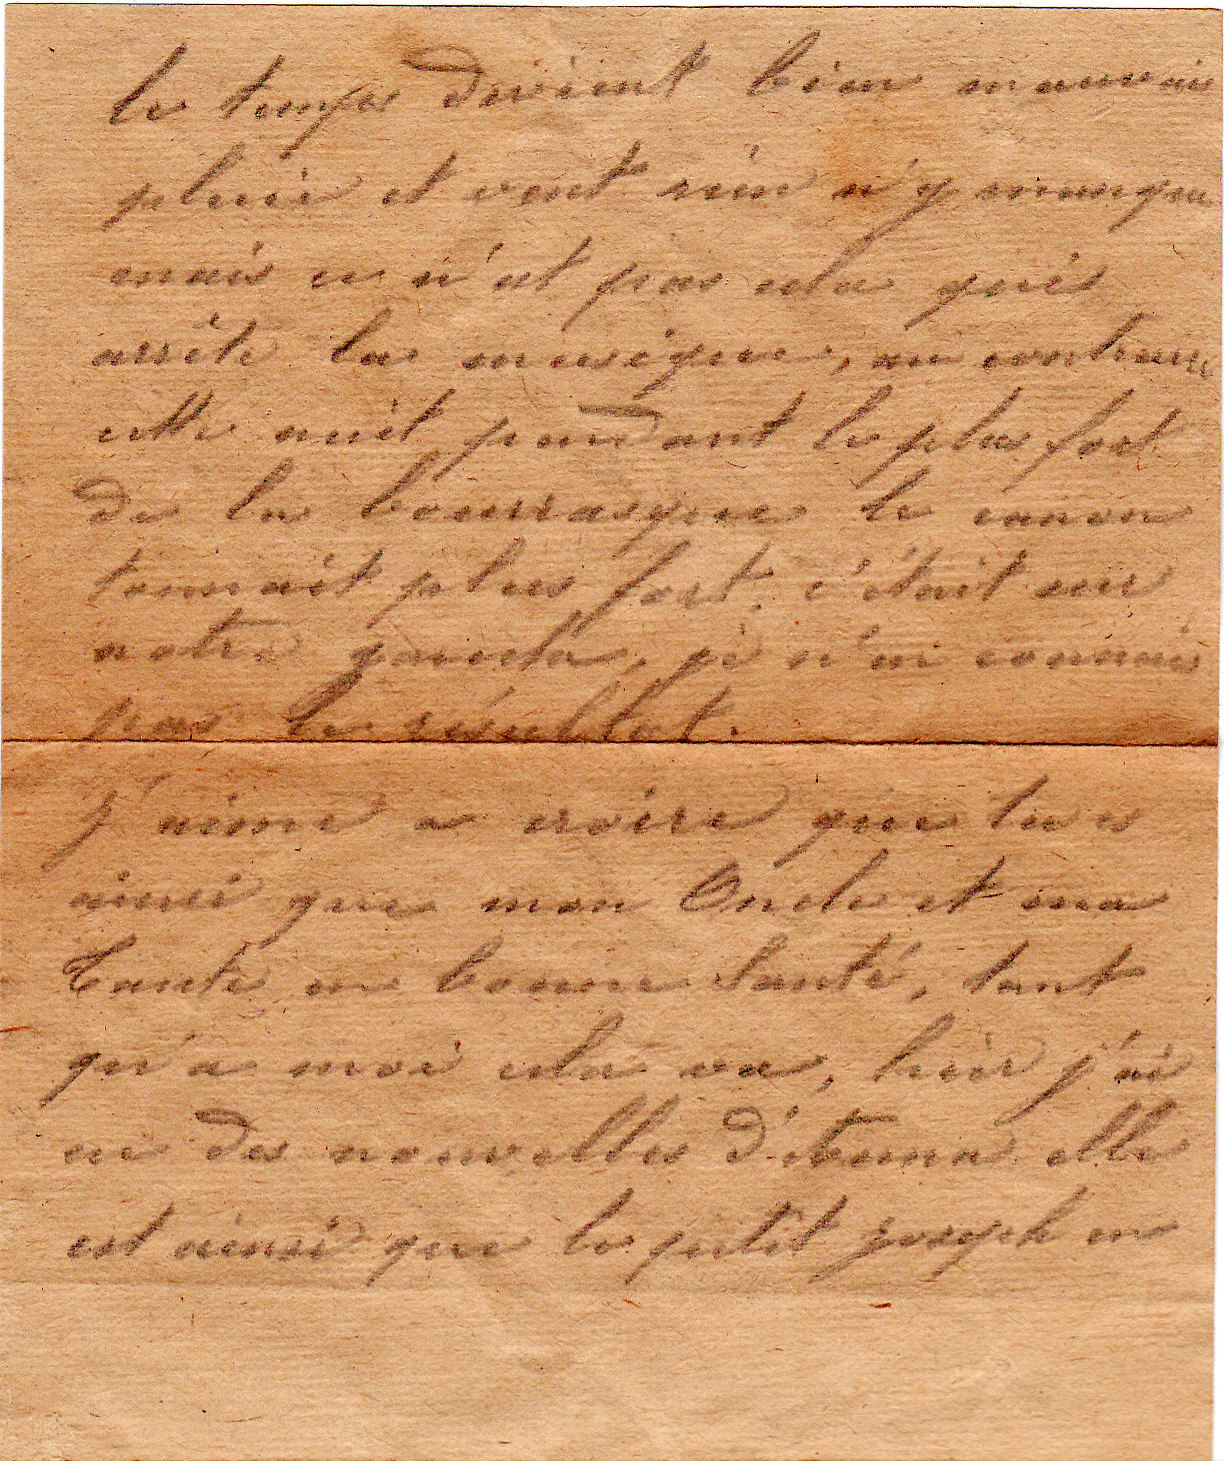 le temps devient bien mauvais
pluie et vent rien n'y manque
mais ce n'est pas cela qui
arrête la musique, au contraire
cette nuit pendant le plus fort
de la bourrasque le canon
tonnait plus fort. c'était sur
notre gauche, je n'en connais
pas le résultat.
J'aime a croire que tu es
ainsi que mon Oncle et ma
Tante en bonne Santé, tant
qu'a moi cela va, hier j'ai
eu des nouvelles d'Emma elle
est ainsi que le petit Joseph en